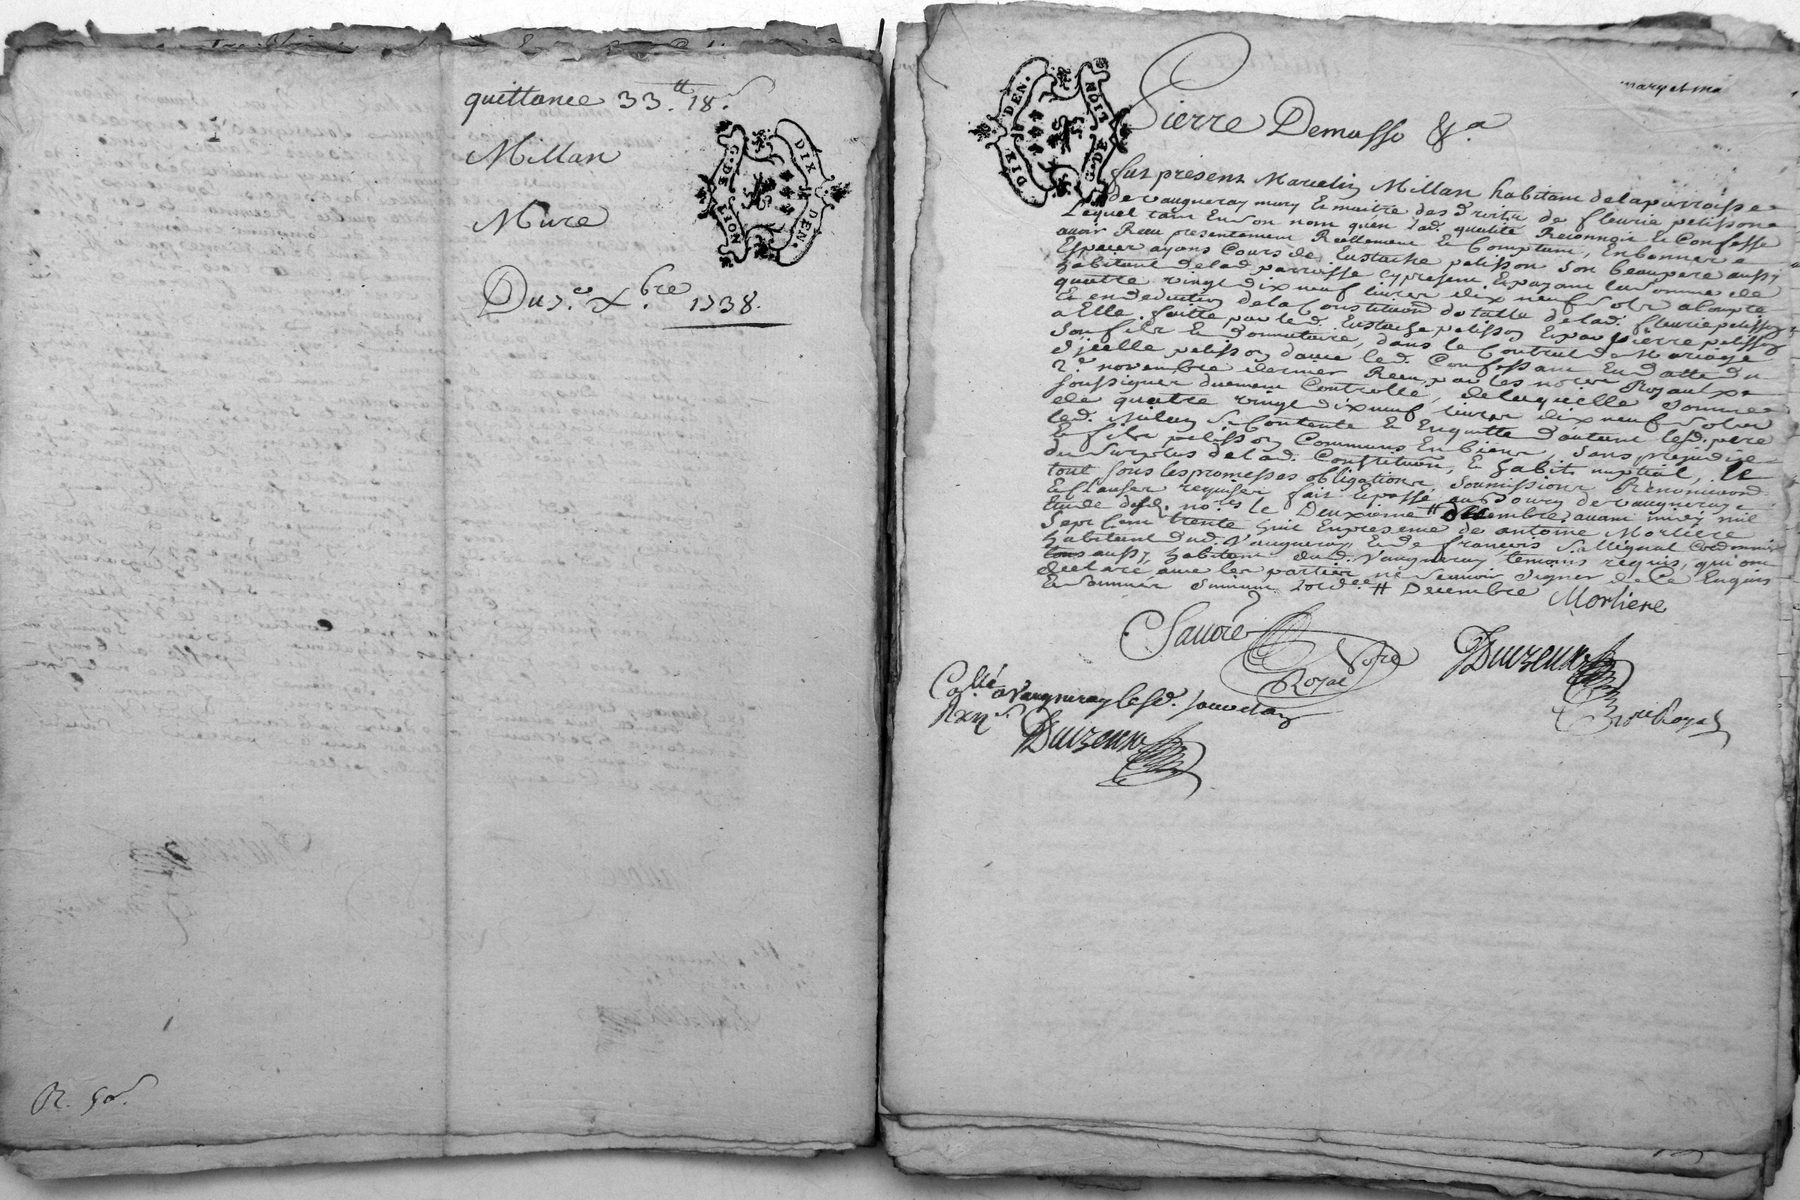 quittance 33.tt 18.s
Millan
Mure
Du 7.e Xbre 1738.
G. DE LION
DIX DEN.
R. 50s.
mary et ma
DIX DEN.
G. DE LION
Pierre Demasso &.a
fut present Marcelin Millan habitant de la parroisse
de vaugneray mary Et maitre des droits de fleurie pelissone
Lequel tant En son nom quen lad. qualité Reconnoit Et Confesse
avoir Receu presentement Reellement Et Comptant, En bonnes
Especes ayans Cours de Eustache pelisson son beaupere aussy
habitant de lad. parroisse cy present Et payant la somme de
quatre vingt dix neuf livres dix neuf sols a compte
Et en deduction de la Constitution dotalle de lad. fleurie pelisson
a Elle faitte par led. Eustache pelisson Et par pierre pelisson
son fils Et donnataire, dans le Contrat de Mariage
d'jcelle pelisson avec led. Confessant En datte du
2.e novembre dernier Receu par les nores Royaux
soussignes duement Controllé, de laquelle somme
de quatre vingt dix neuf livres dix neuf sols
led. Millan se Contente Et En quitte d'autant lesd. pere
Et fils pelisson Communs En biens, sans prejudice
du surplus de lad. Constitution, Et habit nuptial, Et
tout sous les promesses obligations, soumissions Renonciaons
Et clauses requises fait Et passé au Bourg de vaugneray
Etude desd. no.res le Deuxieme # decembre avant midy mil
Sept Cent trente huit En presence de antoine Morliere
habitant dud. Vaugneray Et de françois Cordonnier
aussy habitant dud. Vaugneray temoins requis, qui ont
declaré avec les parties ne scavoir signer de Ce Enquis
Et sommés suivant lord.ce # Decembre
Morliere
no.re Royal
Coll.é a Vaugneray lesd. jour et an